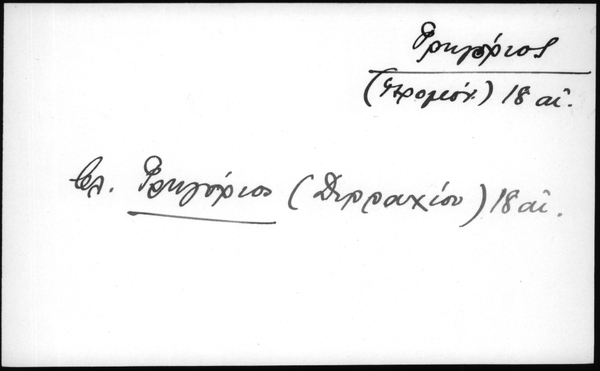 Γρηγόριος
(ἱερομόν.) 18 αἰ.
βλ. Γρηγόριος (Δυρραχίου) 18 αἰ.